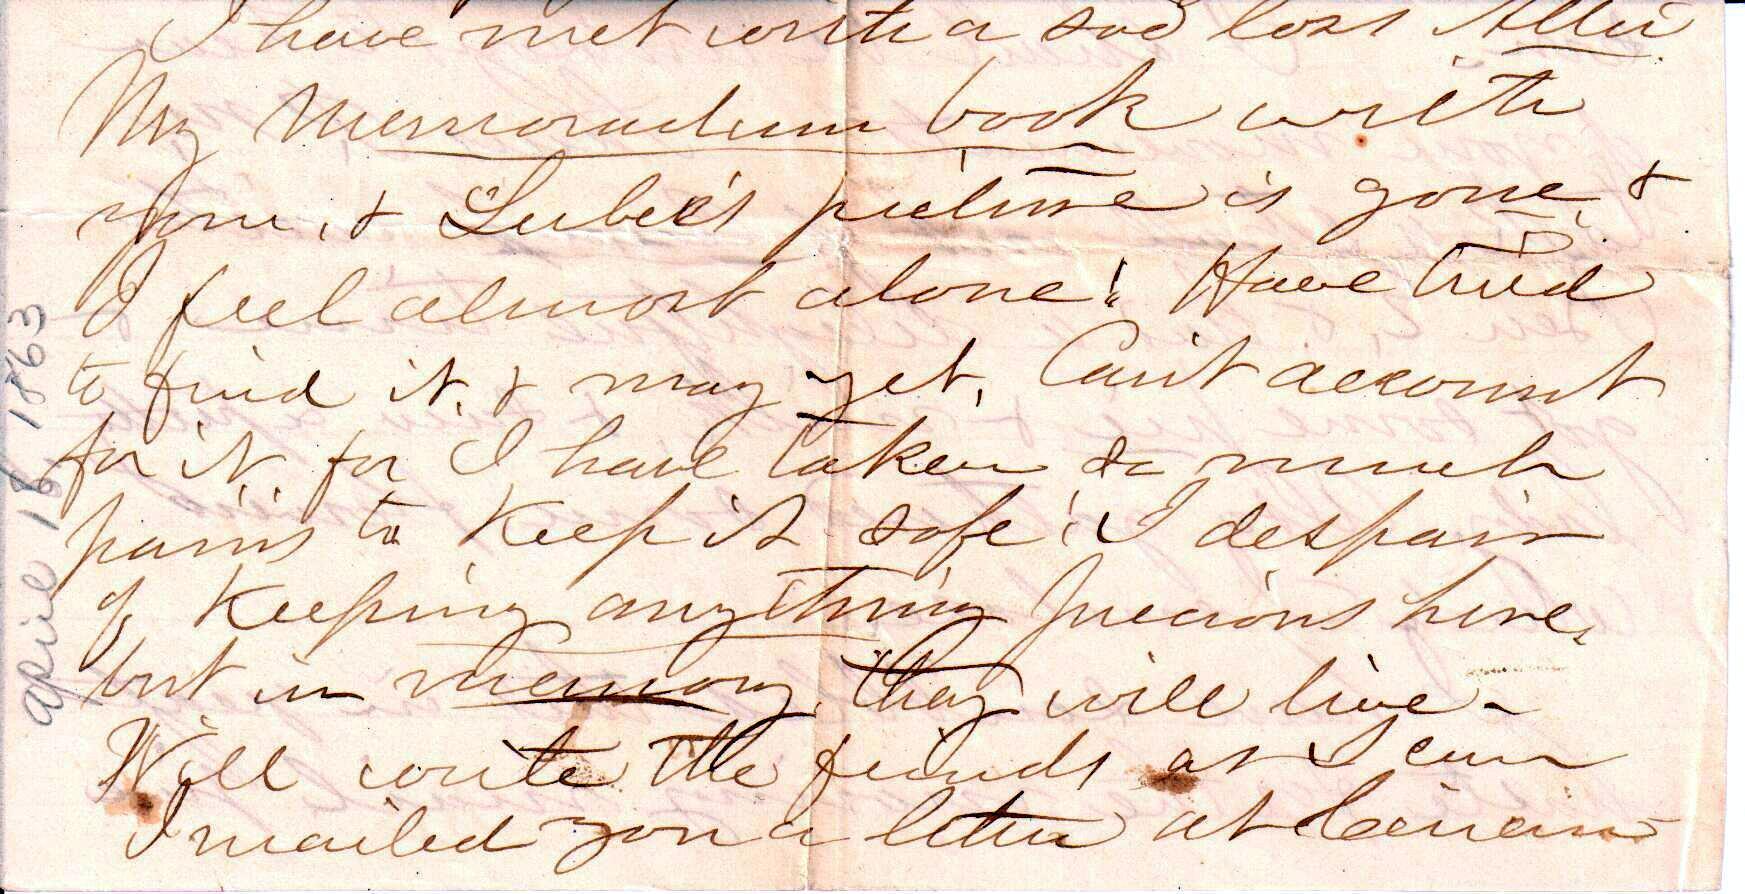 I have met with a sad loss Allie
My Memoradum book with
your, & Lubie's picture is gone, &
I feel almost alone! Have tried
to find it, & may yet, Can't account
for it, for I have taken so much
pains to Keep it safe! I despair
of Keeping anything precious here,
but in memory, they will live -
Will write the friends as I can
I mailed you a letter at
April 18, 1863